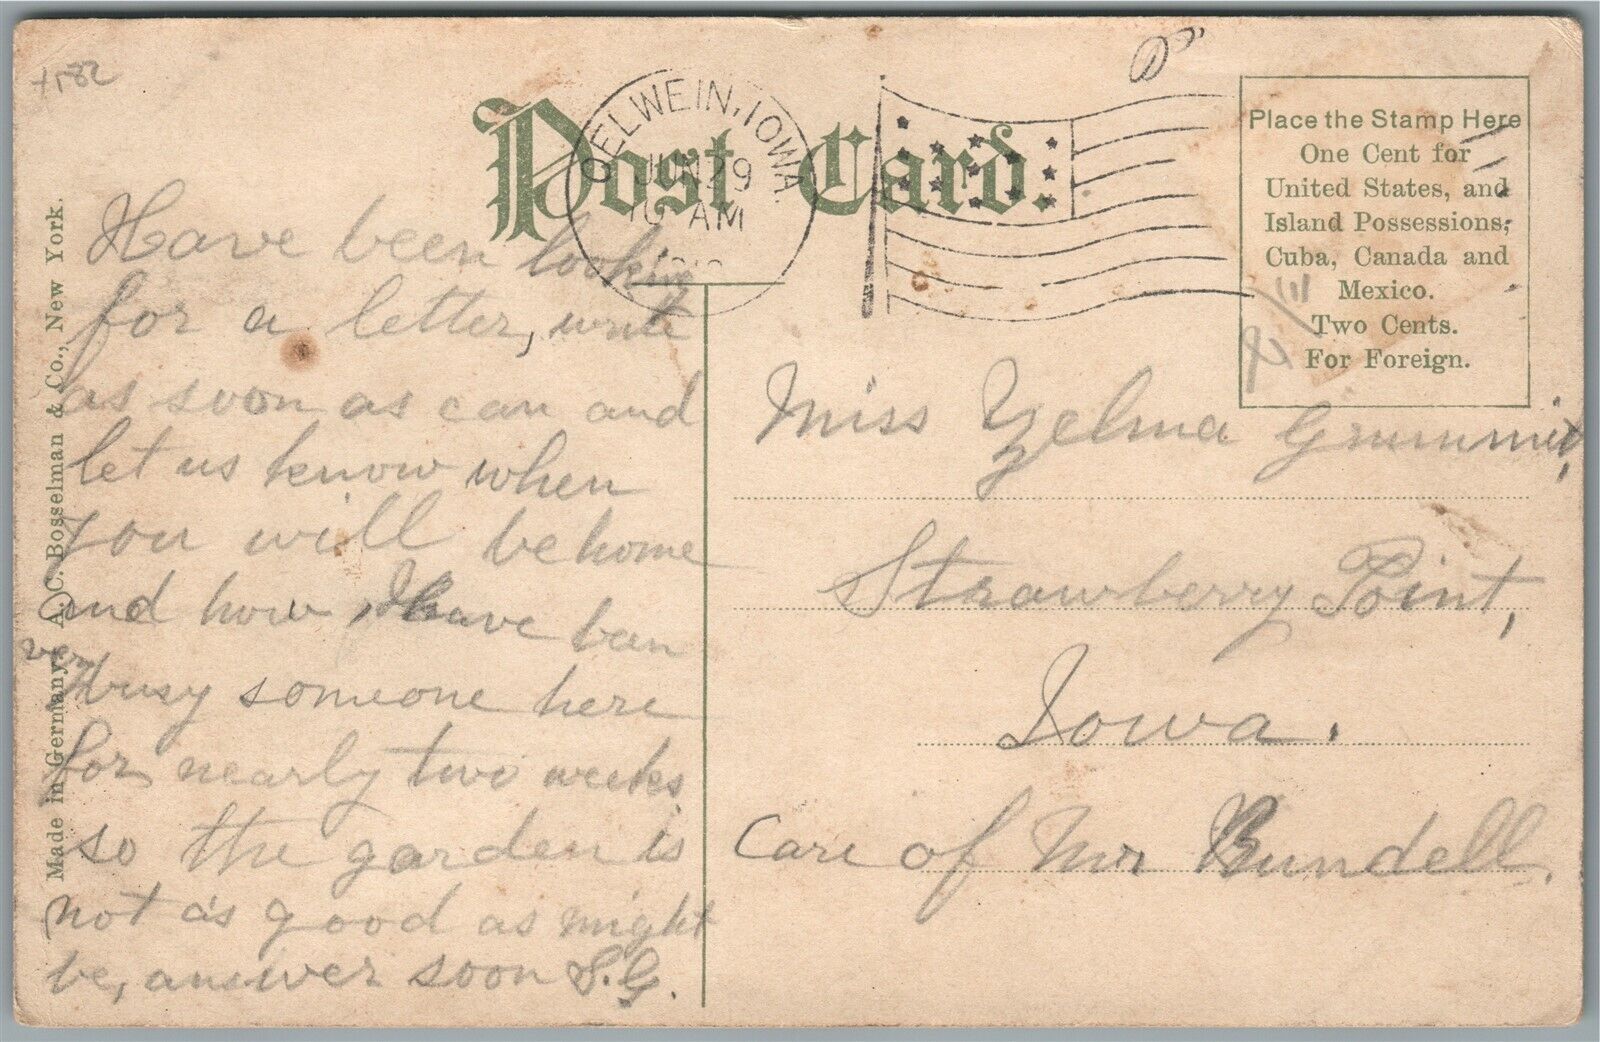 Post Card.
OELWEIN, IOWA.
JUN 29
10 AM
Place the Stamp Here
One Cent for
United States, and
Island Possessions;
Cuba, Canada and
Mexico.
Two Cents.
For Foreign.
Made in Germany. A. C. Bosselman & Co., New York.
Have been looking
for a letter, write
as soon as can and
let us know when
you will be home
and how, I have ban
very busy someone here
for nearly two weeks
so the garden is
not as good as might
be, answer soon S.G.
Miss Zelma Grummit,
Strawberry Point,
Iowa.
Care of Mr Rundell.